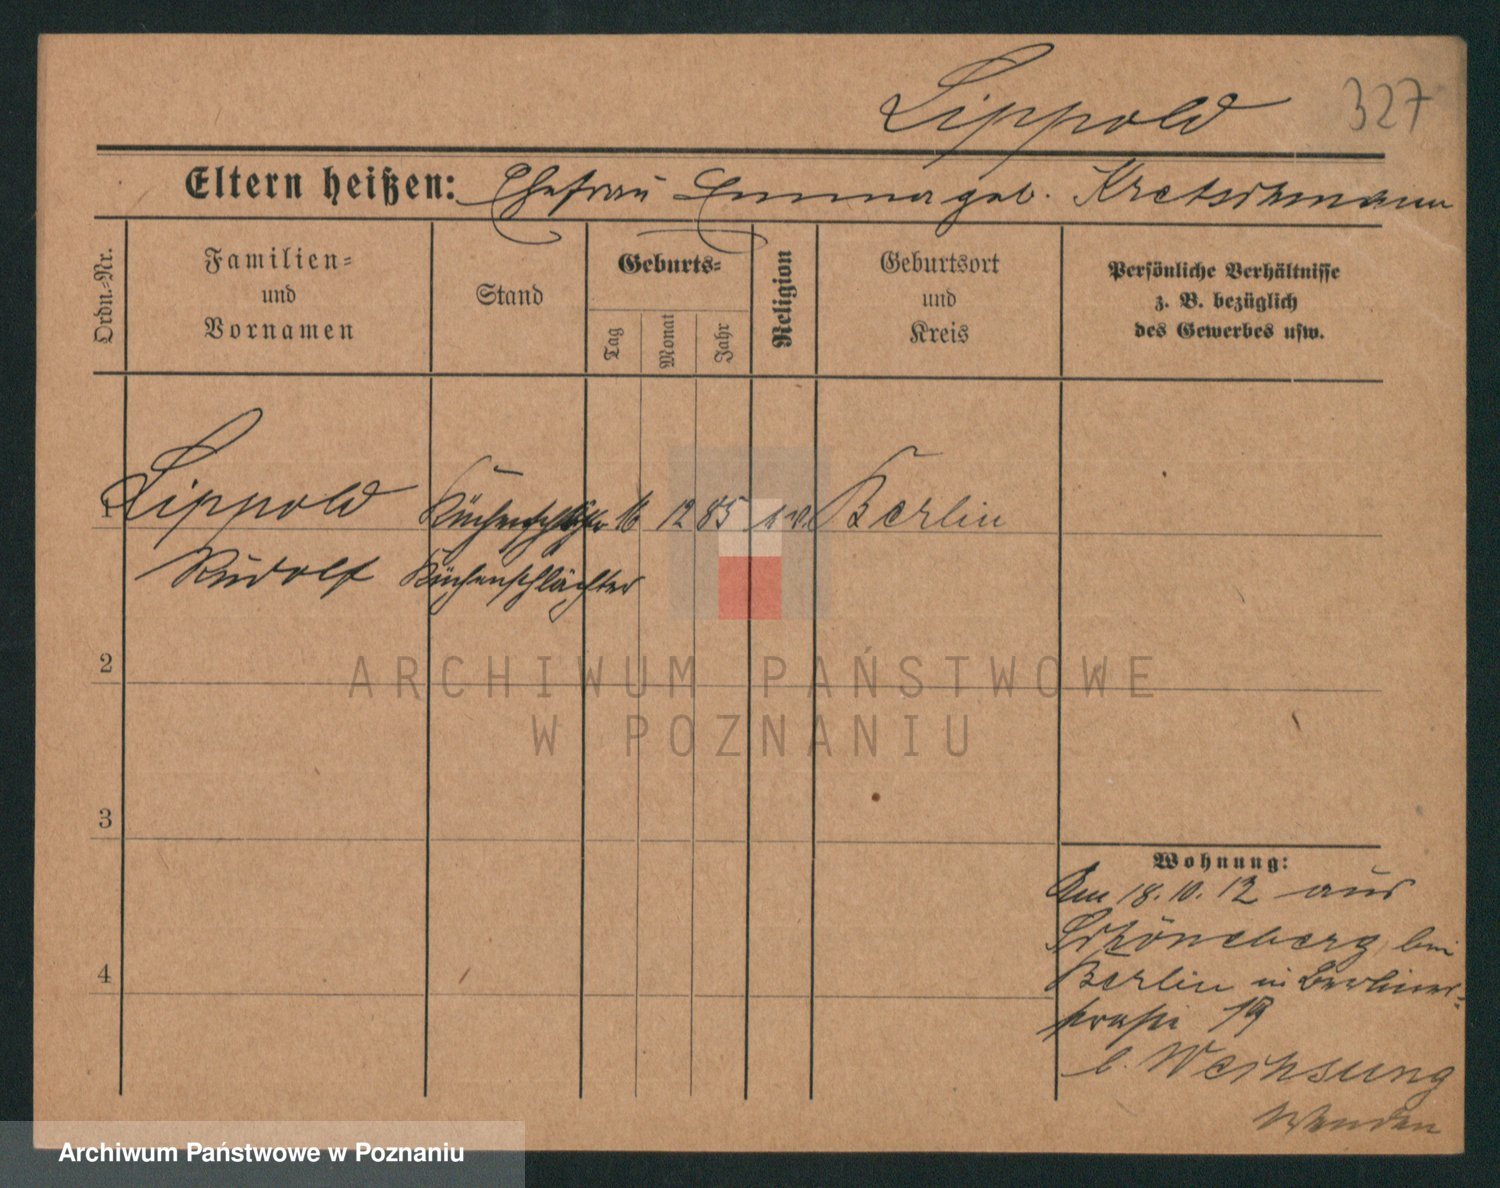 Lippold 327
Eltern heißen: Ehefrau Emma geb. Kretschmann
Ordn.-Nr.
Familien-
und
Vornamen
Stand
Geburts-
Tag
Monat
Jahr
Religion
Geburtsort
und
Kreis
Persönliche Verhältnisse
z. B. bezüglich
des Gewerbes usw.
1 Lippold 16 12 85 ev. Berlin
Rudolf Küchenschlächter
2
ARCHIWUM PAŃSTWOWE
W POZNANIU
3
Wohnung:
Am 18.10.12 aus
Schöneberg bei
Berlin in Berliner-
straße 19
b. Weihsung
Wenden
4
Archiwum Państwowe w Poznaniu